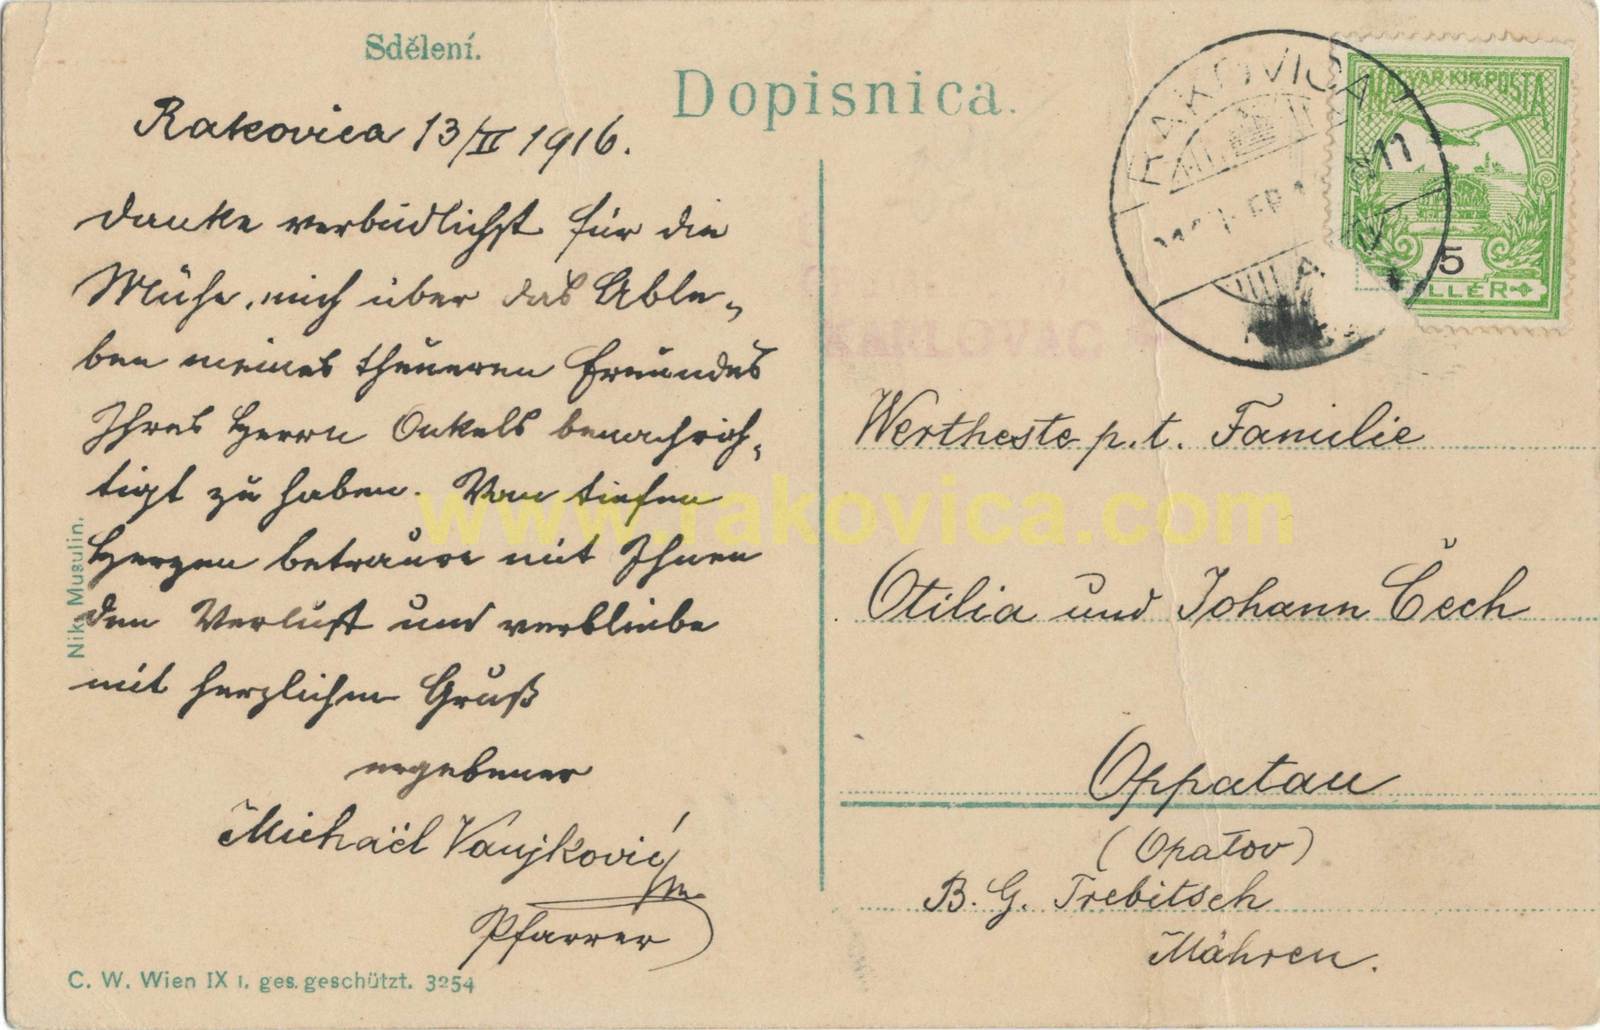 Sdělení.
Dopisnica.
Rakovica 13/II 1916.
Danke verbindlichst für die
Mühe, mich über das Able-
ben meines theueren Freundes
Ihres Herrn Onkels benachrich-
tigt zu haben. Von tiefen
Herzen betraure mit Ihnen
den Verlust und verbleibe
mit herzlichem Gruß
ergebener
Michaël Vanjković
Pfarrer
Nik. Musulin.
C. W. Wien IX I. ges. geschützt. 3254
RAKOVICA
11
MAGYAR KIR. POSTA
5
FILLÉR
KARLOVAC
www.rakovica.com
Wertheste p. t. Familie
Otilia und Johann Čech
Oppatau
(Opatov)
B. G. Trebitsch
Mähren.